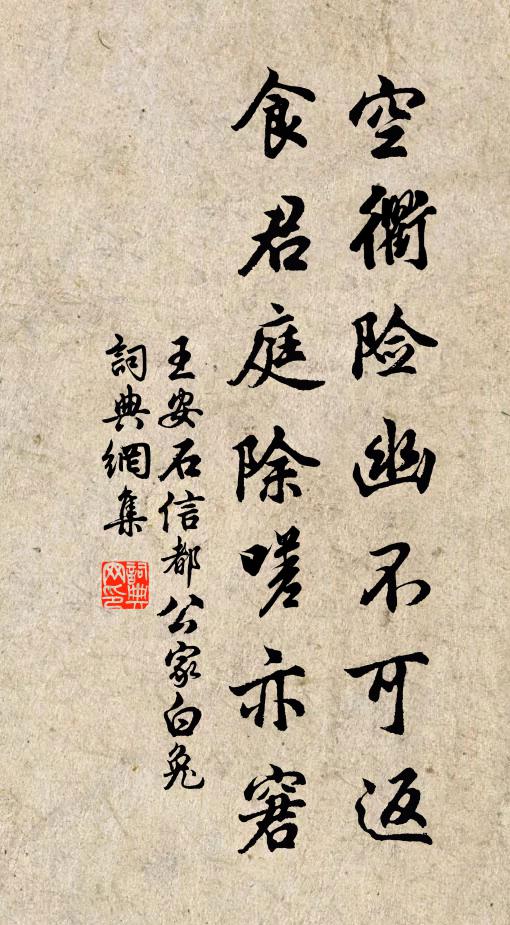 空衢险幽不可返
食君庭除嗟亦窘
王安石信都公家白兔
詞典網集
詞典网印